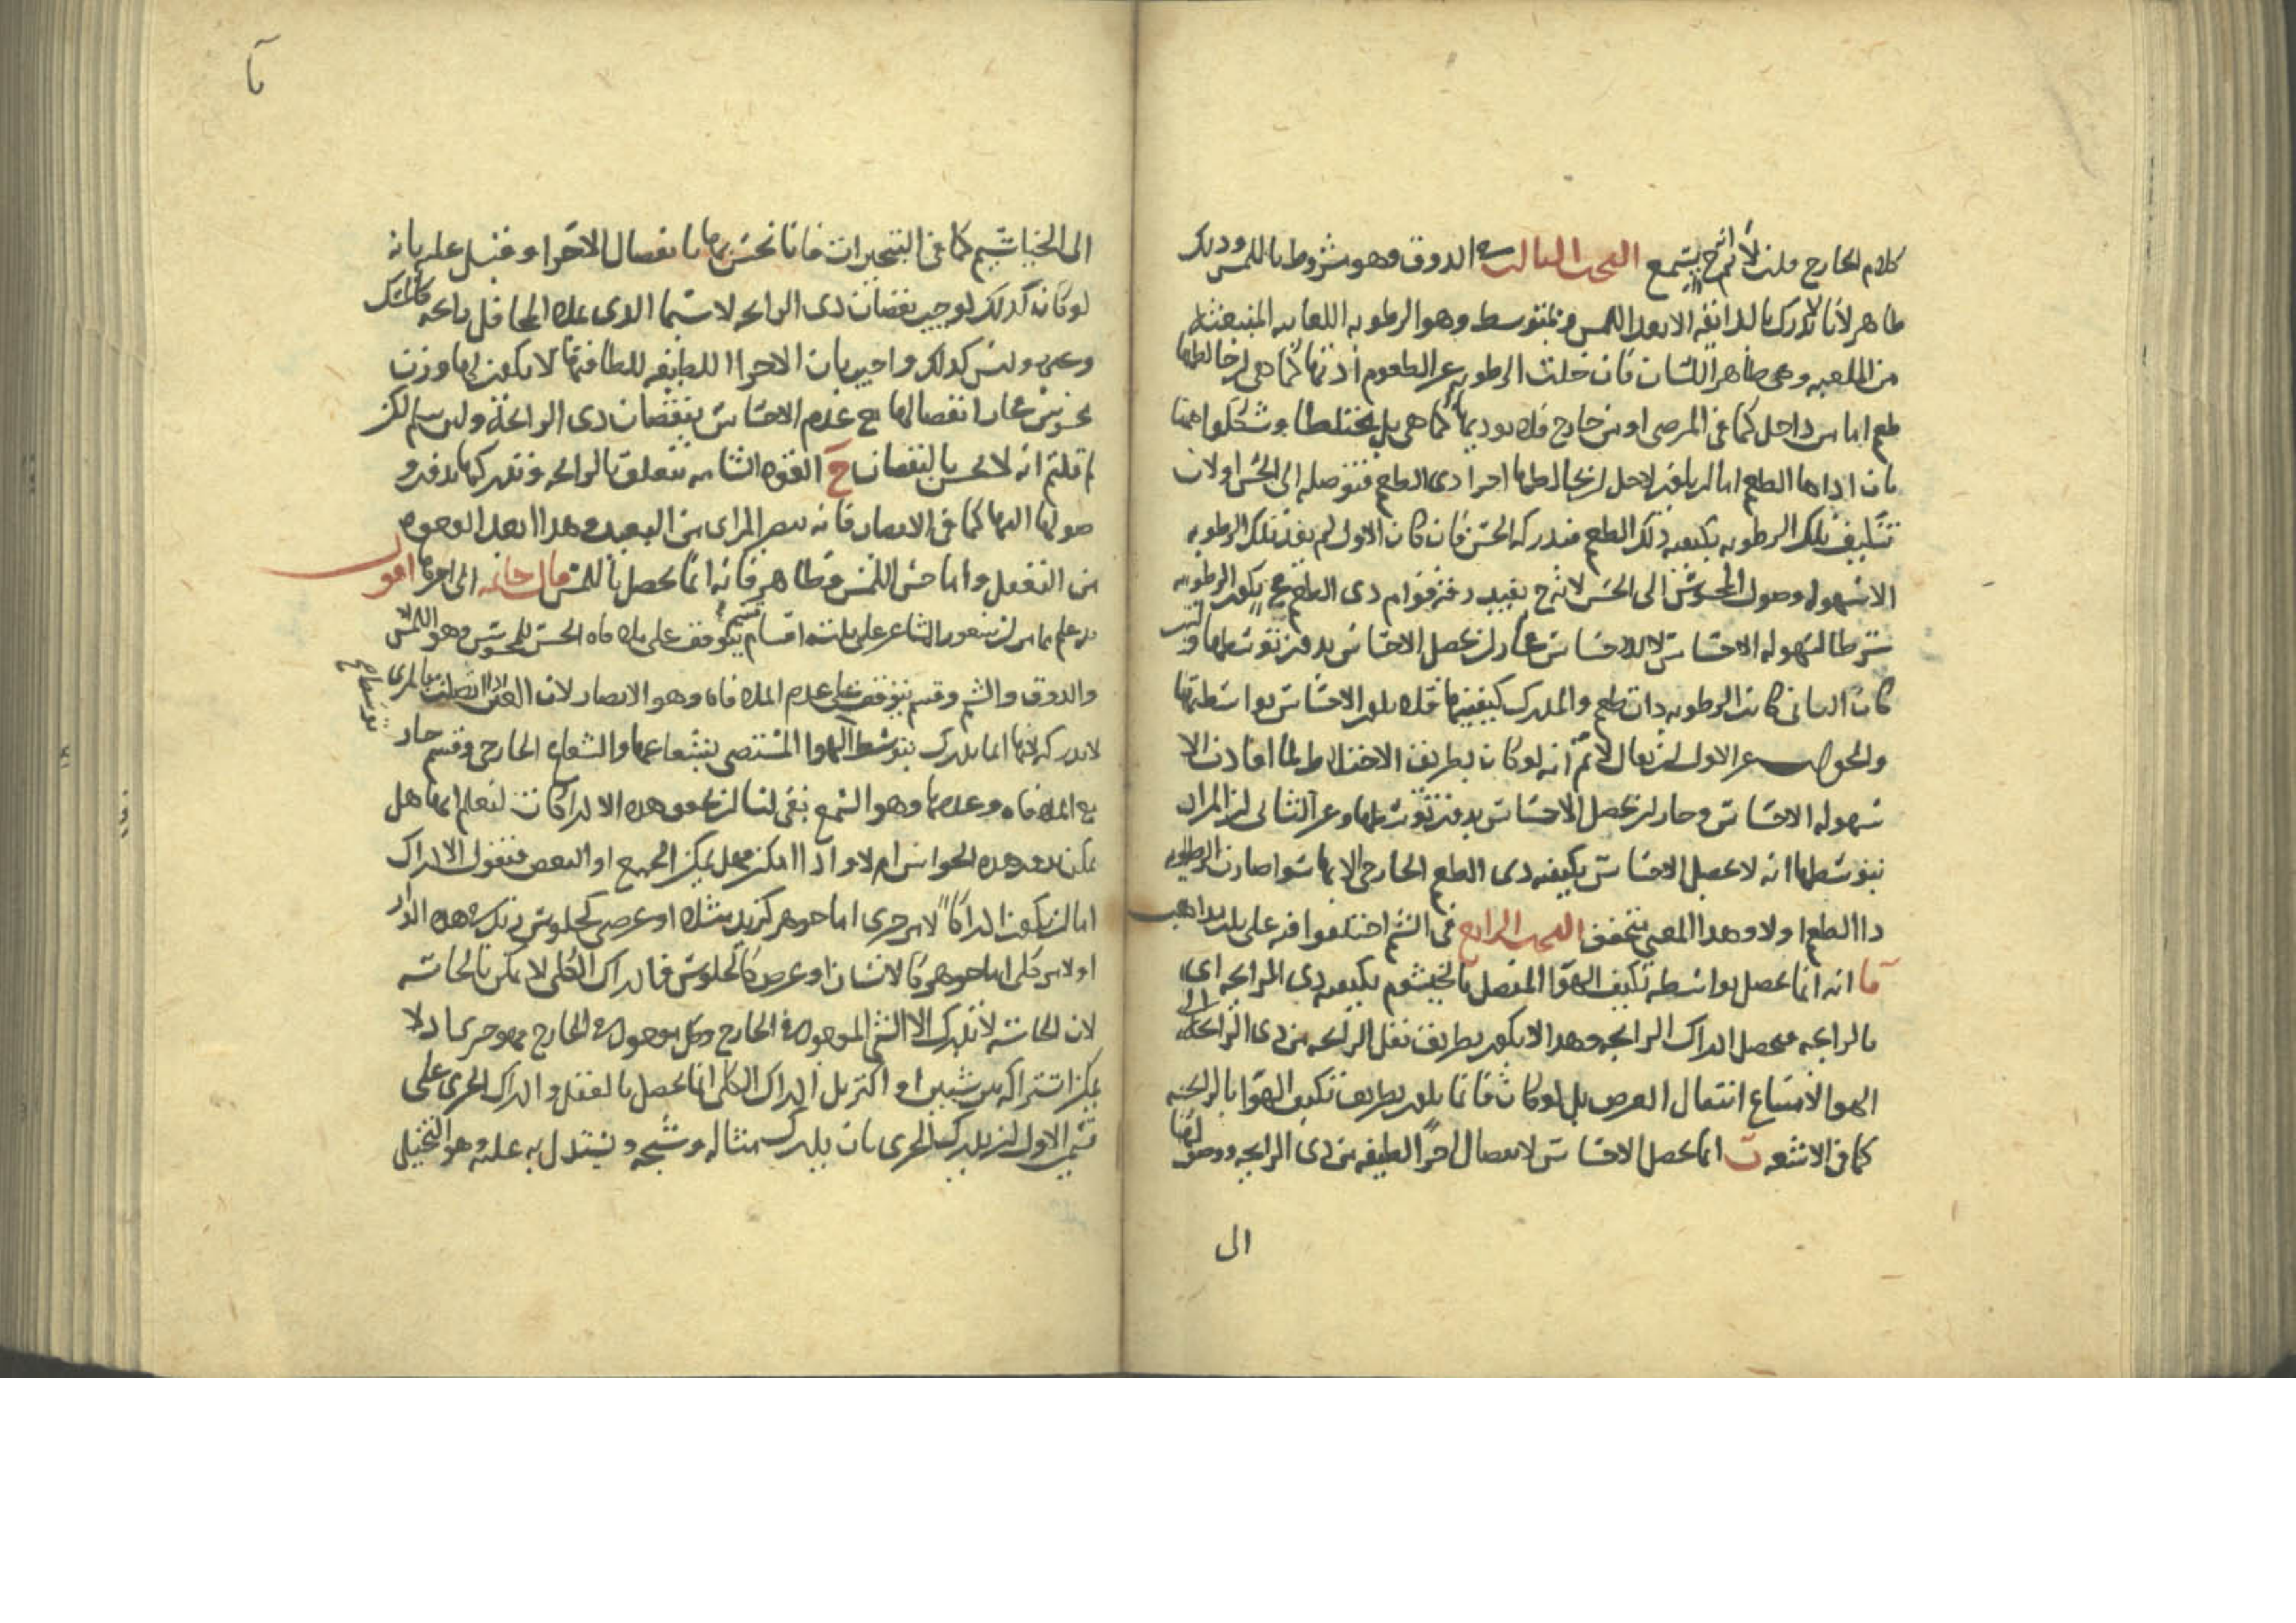 كلام الخارج قلت لا نم ح يسمع البحث الثالث في الذوق وهو مشروط باللمس وذلك
ظاهر لأنا لا ندرك بالذائقة الا بعد اللمس وبمتوسط وهو الرطوبة اللعابية المنبعثة
من الملعبة وهي ظاهر اللسان فان خلت الرطوبة عن الطعوم ادتها كما هي وان خالطها
طعم اما من داخل كما في المرضى او من خارج فلا توديها كما هي بل مختلطا وشككوا ههنا
بان اداها الطعم اما ان يكون لاجل ان يخالطها اجزا ذي الطعم فتوصله الى الحس او لان
تتكيف تلك الرطوبة بكيفية ذلك الطعم فيدركه الحس فان كان الاول لم يفد تلك الرطوبة
الا سهولة وصول المحسوس الى الحس لا نه ح يفيد رقة قوام ذي الطعم فح يكون الرطوبة
شرطا لسهولة الاحساس لا للاحساس فجاز ان يحصل الاحساس بدون توسطها وان
كان الثاني كانت الرطوبة ذات طعم والمدرك كيفيتها فلا يكون الاحساس بواسطتها
والجواب عن الاول ان يقال لا نم انه لو كان بطريق الاختلاط لما افادت الا
سهولة الاحساس وجاز ان يحصل الاحساس بدون توسطها وعن الثاني ان المراد
بتوسطها انه لا يحصل الاحساس بكيفية ذي الطعم الخارجي الا بها سوا صارت الرطوبة
ذا الطعم او لا وهذا المعنى متحقق البحث الرابع في الشم اختلفوا فيه على ثلث مذاهب
آ انه انما يحصل بواسطة تكيف الهوا المتصل بالخيشوم بكيفية ذي الرايحة اي
بالرايحة فيحصل ادراك الرايحة وهذا لا يكون بطريق نقل الرايحة من ذي الرايحة الى
الهوا لامتناع انتقال العرض بل لو كان فانما يكون بطريق تكيف الهوا بالرايحة
كما في الاشعة ب انما يحصل الاحساس لانفصال اجزا لطيفة من ذي الرايحة ووصولها
ال
الى الخياشيم كما في التبخيرات فانا نحس بها بانفصال الاجزا وقيل عليه بانه
لو كان كذلك لوجب نقصان ذي الرايحة لا سيما الذي يملا المحافل رايحة كالمسك
وغيره وليس كذلك واجيب بان الاجزا اللطيفة للطافتها لا يكون لها وزن
محسوس فجاز انفصالها مع عدم الاحساس بنقصان ذي الرايحة ولين سلم لكن
لم قلتم انه لا يحس بالنقصان ج القوة الشامة تتعلق بالرايحة وتدركها بدون و
صولها اليها كما في الابصار فانه يبصر المرائ من البعيد وهذا ابعد الوجوه
من التعقل واما حس اللمس فظاهر فانه انما يحصل باللمس قال خاتمة الى اخرها اقول
قد علم مما مر ان شعور المشاعر على ثلثة اقسام قسم يتوقف على ملاقاة الحس للمحسوس وهو اللمس
والذوق والشم وقسم يتوقف على عدم الملاقاة وهو الابصار لان العين اذا اتصلت بها المرئ
لا تدركه لانها انما تدرك بتوسط الهوا المستضي بشعاعها والشعاع الخارجي وقسم جاز
مع الملاقاة وعدمها وهو السمع بقي لنا ان نحقق هذه الادراكات لنعلم انها هل
يمكن بعد هذه الحواس ام لا واذا امكن فهل يمكن الجميع او البعض فنقول الادراك
اما ان يكون ادراكا لامر جزي اما جوهر كزيد مثلا او عرض كجلوس زيد في هذه الدار
او لامر كلي اما جوهر كالانسان او عرض كالجلوس فادراك الكلي لا يمكن بالحاسة
لان الحاسة لا تدرك الا الشي الموجود في الخارج وكل موجود في الخارج فهو جزي اذ لا
يمكن اشتراكه بين شيئين او اكثر بل ادراك الكلي انما يحصل بالعقل وادراك الجزي على
قسمين الاول ان يدرك الجزي بان يدرك مثاله وشبحه ويستدل به عليه وهو التخيلي